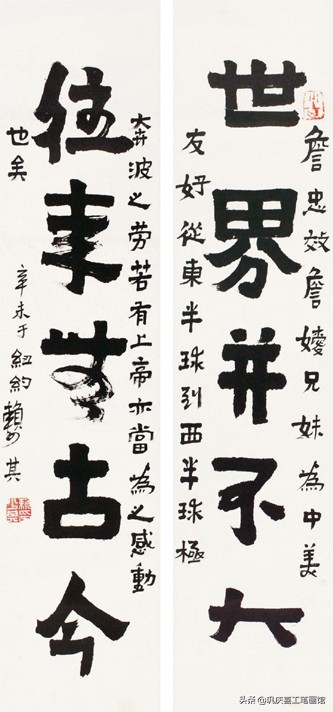 詹忠效詹嬡兄妹為中美
世界并不大
友好從東半球到西半球極
奔波之劳若有上帝亦當為之感動
往来無古今
也矣
辛未于紐約賴少其
头条 @巩庆喜工笔画馆